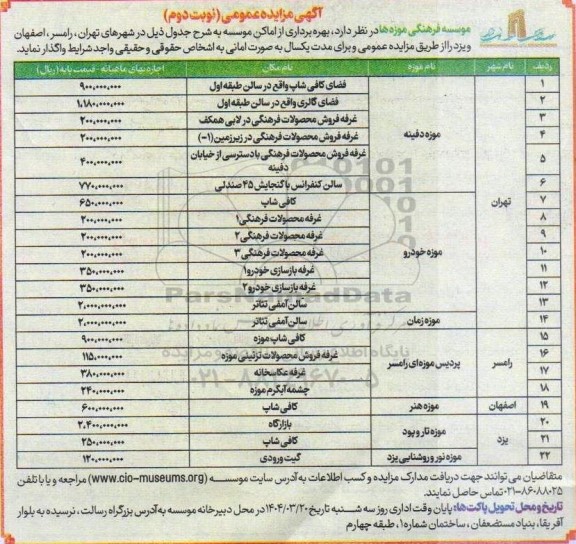 آگهی مزایده عمومی (نوبت دوم)
موسسه فرهنگی موزه‌ها در نظر دارد، بهره‌برداری از اماکن موسسه به شرح جدول ذیل در شهرهای تهران، رامسر، اصفهان
و یزد را از طریق مزایده عمومی و برای مدت یکسال به صورت امانی به اشخاص حقوقی و حقیقی واجد شرایط واگذار نماید.
ردیف نام شهر نام موزه نام مکان اجاره بهای ماهیانه - قیمت پایه (ریال)
۱ تهران موزه دفینه فضای کافی شاپ واقع در سالن طبقه اول ۹۰۰,۰۰۰,۰۰۰
۲ فضای گالری واقع در سالن طبقه اول ۱,۱۸۰,۰۰۰,۰۰۰
۳ غرفه فروش محصولات فرهنگی در لابی همکف ۲۰۰,۰۰۰,۰۰۰
۴ غرفه فروش محصولات فرهنگی در زیرزمین (۱-) ۲۰۰,۰۰۰,۰۰۰
۵ غرفه فروش محصولات فرهنگی با دسترسی از خیابان دفینه ۴۰۰,۰۰۰,۰۰۰
۶ سالن کنفرانس با گنجایش ۴۵ صندلی ۷۷۰,۰۰۰,۰۰۰
۷ موزه خودرو کافی شاپ ۶۵۰,۰۰۰,۰۰۰
۸ غرفه محصولات فرهنگی ۱ ۲۰۰,۰۰۰,۰۰۰
۹ غرفه محصولات فرهنگی ۲ ۲۰۰,۰۰۰,۰۰۰
۱۰ غرفه محصولات فرهنگی ۳ ۲۰۰,۰۰۰,۰۰۰
۱۱ غرفه بازسازی خودرو ۱ ۳۵۰,۰۰۰,۰۰۰
۱۲ غرفه بازسازی خودرو ۲ ۳۵۰,۰۰۰,۰۰۰
۱۳ سالن آمفی تئاتر ۲,۰۰۰,۰۰۰,۰۰۰
۱۴ موزه زمان سالن آمفی تئاتر ۲,۰۰۰,۰۰۰,۰۰۰
۱۵ رامسر پردیس موزه‌ای رامسر کافی شاپ موزه ۹۰۰,۰۰۰,۰۰۰
۱۶ غرفه فروش محصولات تزئینی موزه ۱۱۵,۰۰۰,۰۰۰
۱۷ غرفه عکاسخانه ۳۸۰,۰۰۰,۰۰۰
۱۸ چشمه آبگرم موزه ۲۴۰,۰۰۰,۰۰۰
۱۹ اصفهان موزه هنر کافی شاپ ۶۰۰,۰۰۰,۰۰۰
۲۰ یزد موزه تار و پود بازارگاه ۲,۴۰۰,۰۰۰,۰۰۰
۲۱ کافی شاپ ۲۵۰,۰۰۰,۰۰۰
۲۲ موزه نور و روشنایی یزد گیت ورودی ۱۲۰,۰۰۰,۰۰۰
متقاضیان می‌توانند جهت دریافت مدارک مزایده و کسب اطلاعات به آدرس سایت موسسه (www.cio-museums.org) مراجعه و یا با تلفن
۰۲۱-۸۶۰۸۸۰۲۵ تماس حاصل نمایند.
تاریخ و محل تحویل پاکت‌ها: پایان وقت اداری روز سه شنبه تاریخ ۱۴۰۴/۰۳/۲۰ در محل دبیرخانه موسسه به آدرس بزرگراه رسالت، نرسیده به بلوار
آفریقا، بنیاد مستضعفان، ساختمان شماره ۱، طبقه چهارم